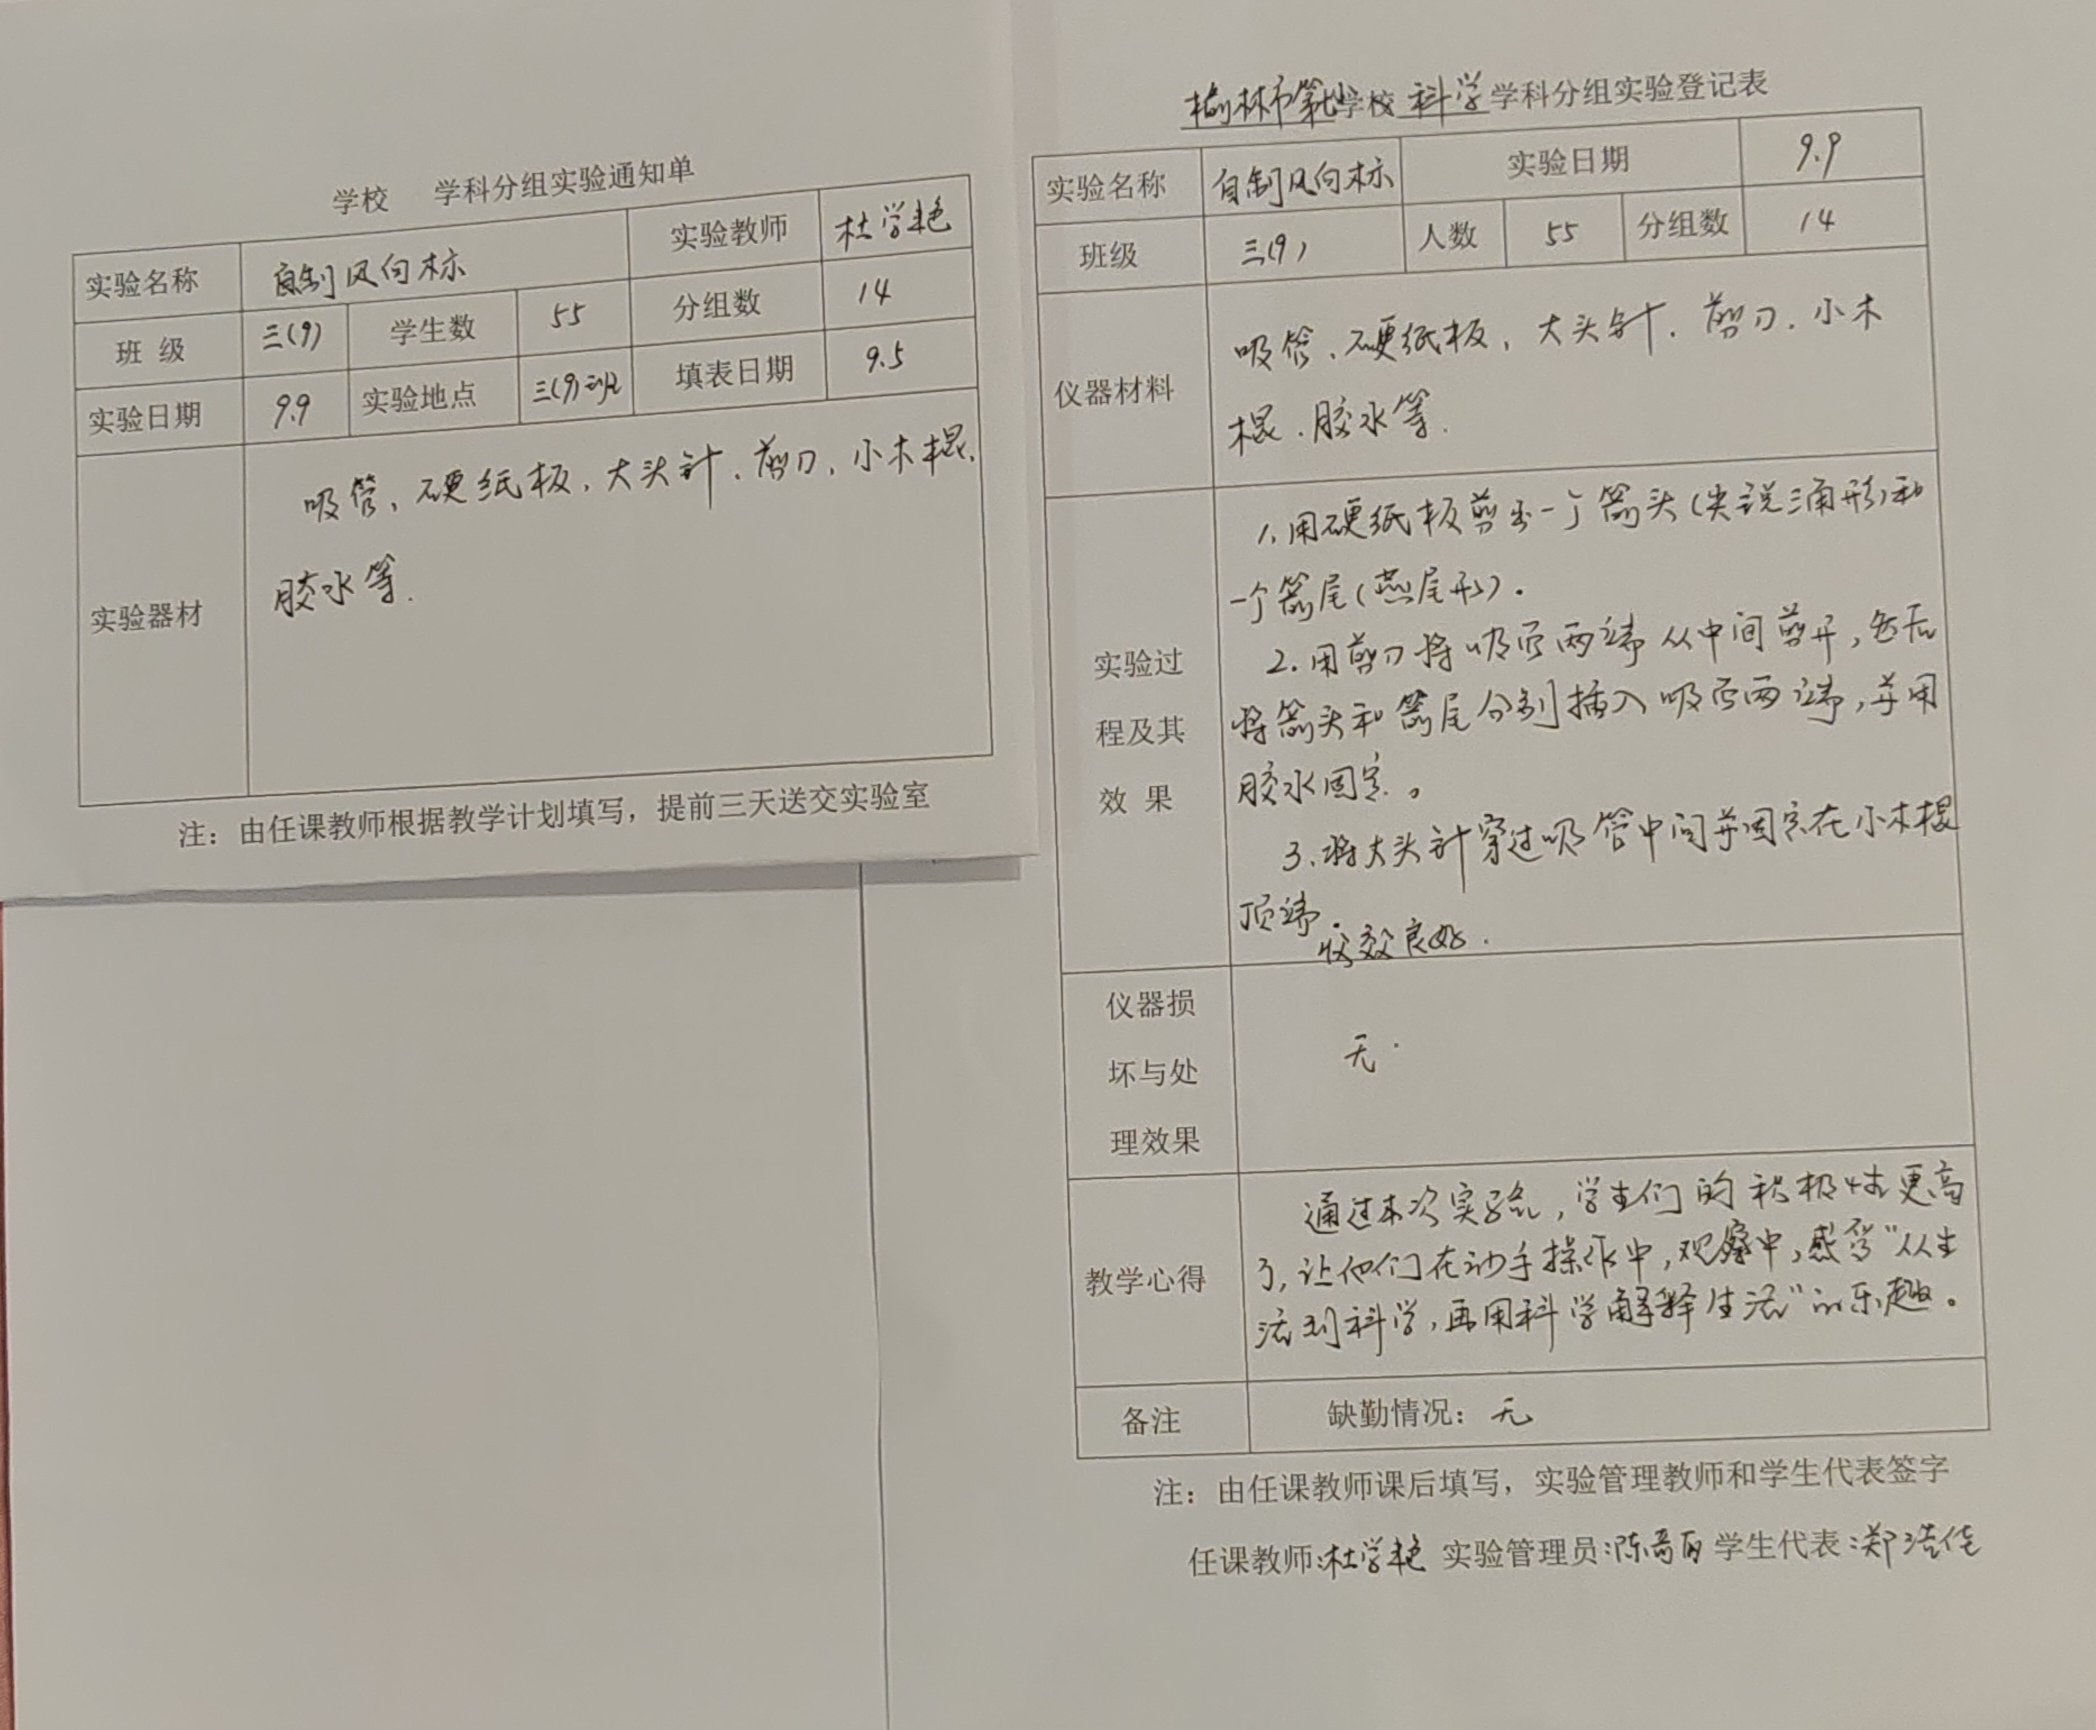 学校 学科分组实验通知单
实验名称 自制风向标 实验教师 杜学艳
班级 三(9) 学生数 55 分组数 14
实验日期 9.9 实验地点 三(9)班 填表日期 9.5
实验器材
吸管、硬纸板、大头针、剪刀、小木棍、
胶水等.
注：由任课教师根据教学计划填写，提前三天送交实验室
榆林市第 学校 科学 学科分组实验登记表
实验名称 自制风向标 实验日期 9.9
班级 三(9) 人数 55 分组数 14
仪器材料
吸管、硬纸板、大头针、剪刀、小木
棍、胶水等.
实验过
程及其
效果
1、用硬纸板剪出一个箭头(尖 三角形)和
一个箭尾(燕尾形).
2.用剪刀将吸 两端从中间剪开,然后
将箭头和箭尾分别插入吸 两端,并用
胶水固定。
3、将大头针穿过吸管中间并固定在小木棍
顶端.
效良好.
仪器损
坏与处
理效果
无.
教学心得
通过本次实验,学生们的积极性更高
了,让他们在动手操作中,观察中,感受“从生
活到科学,再用科学解释生活”的乐趣。
备注 缺勤情况：无
注：由任课教师课后填写，实验管理教师和学生代表签字
任课教师:杜学艳 实验管理员:陈 学生代表:郑浩佳